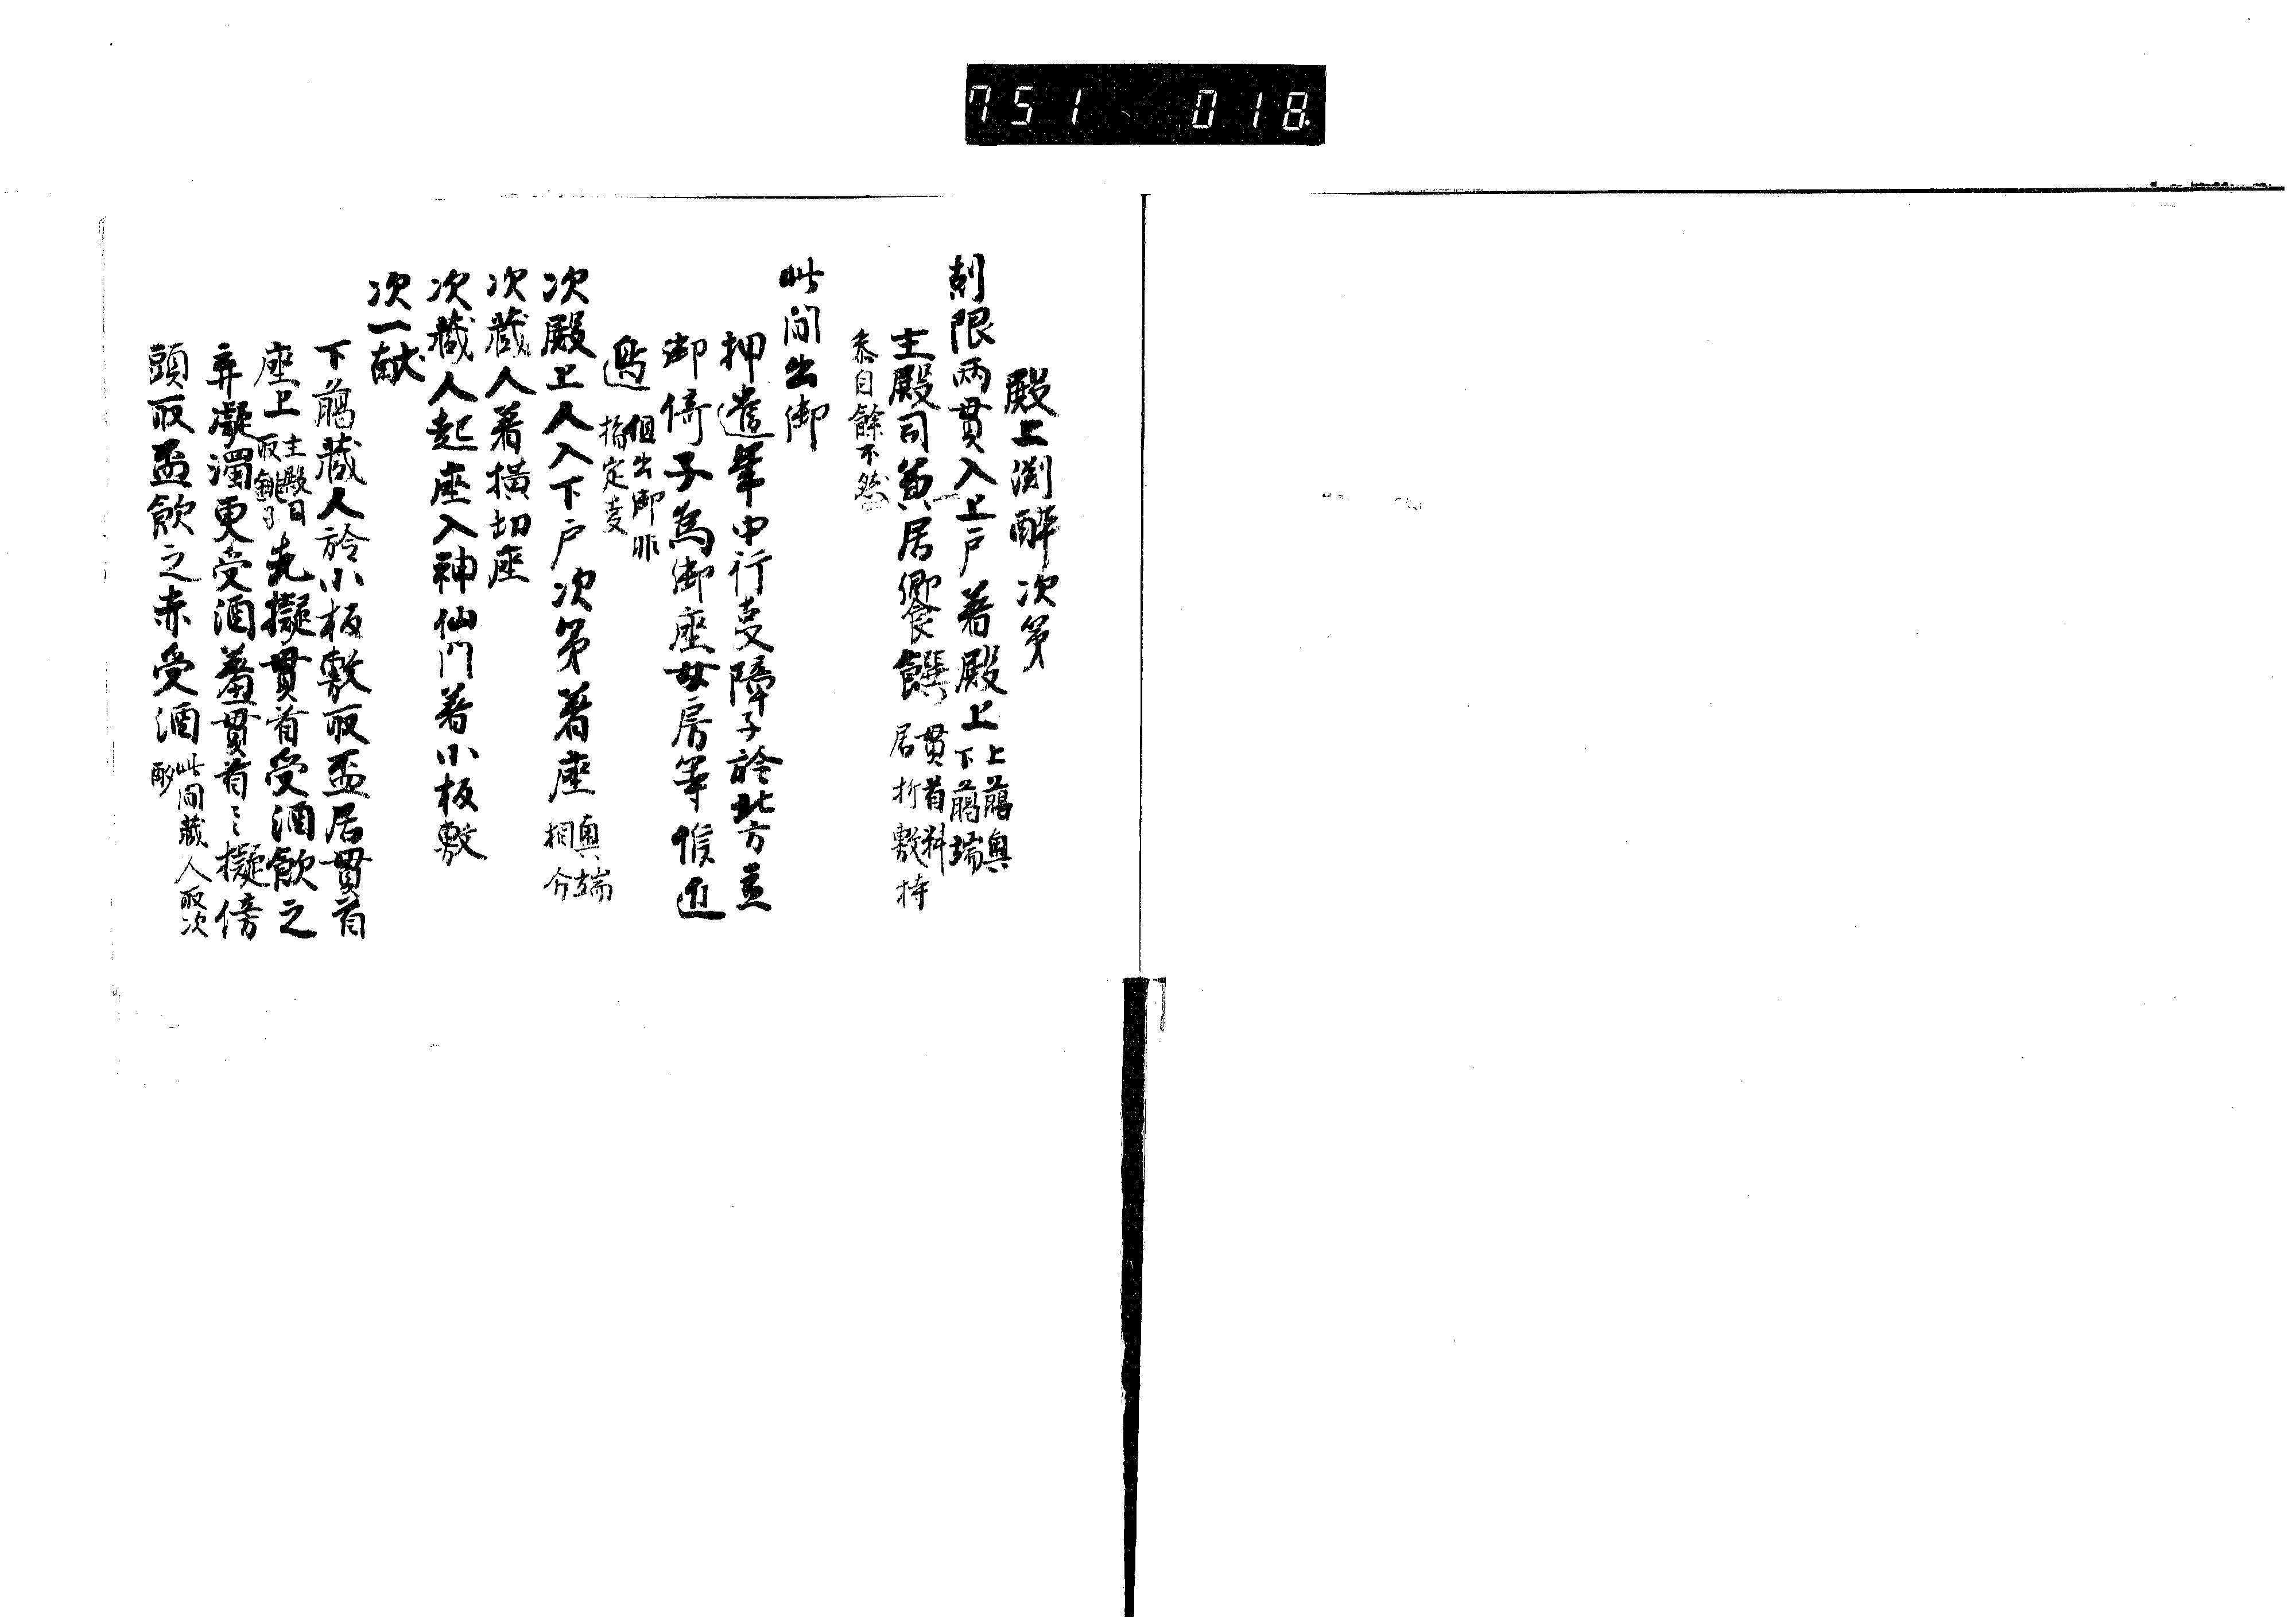 751 018
殿上渕酔次第
剋限両貫入上戸着殿上上﨟奥下﨟端
主殿司萬居饗饌貫首料居折敷持
参自餘不然
此間出御
押遣年中行事障子於北方立
御倚子為御座女房等候近
邊但出御非指定事
次殿上人入下戸次第着座奥端相分
次蔵人着横切座
次蔵人起座入神仙門着小板敷
次一献
下﨟蔵人於小板敷取盃居貫首
座上主殿司取銚子先擬貫首受酒飲之
弃凝濁更受酒羞貫首々擬傍
頭取盃飲之亦受酒此間蔵人取次酌